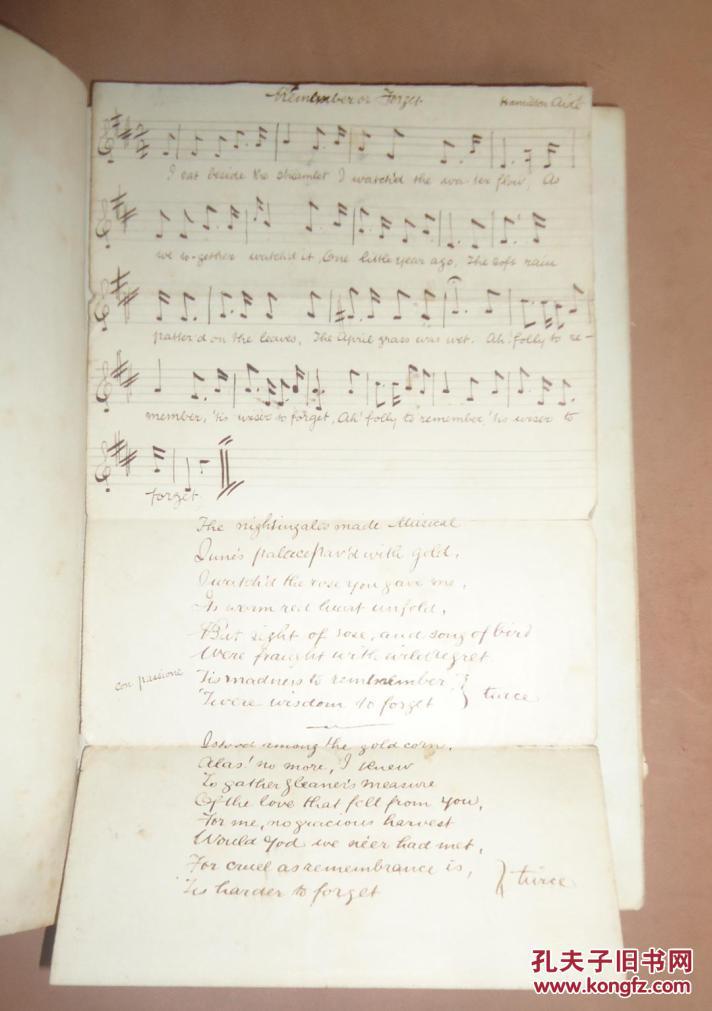 Remember or Forget.
Hamilton Aïdé
I sat beside the streamlet I watch'd the wa-ter flow, As
we to-gether watch'd it, One little year ago, The soft rain
patter'd on the leaves, The April grass was wet. Ah! folly to re-
member, 'tis wiser to forget, Ah! folly to remember, 'tis wiser to
forget.
The nightingales made Musical
June's palace pav'd with gold,
I watch'd the rose you gave me,
Its warm red heart unfold,
But sight of rose, and song of bird
Were fraught with wild regret
con passione
'Tis madness to remember,
'Twere wisdom to forget } twice
I stood among the gold corn,
Alas! no more, I knew
To gather gleaner's measure
Of the love that fell from you,
For me, no gracious harvest
Would God we ne'er had met,
For cruel as remembrance is,
'Tis harder to forget } twice
孔夫子旧书网
www.kongfz.com